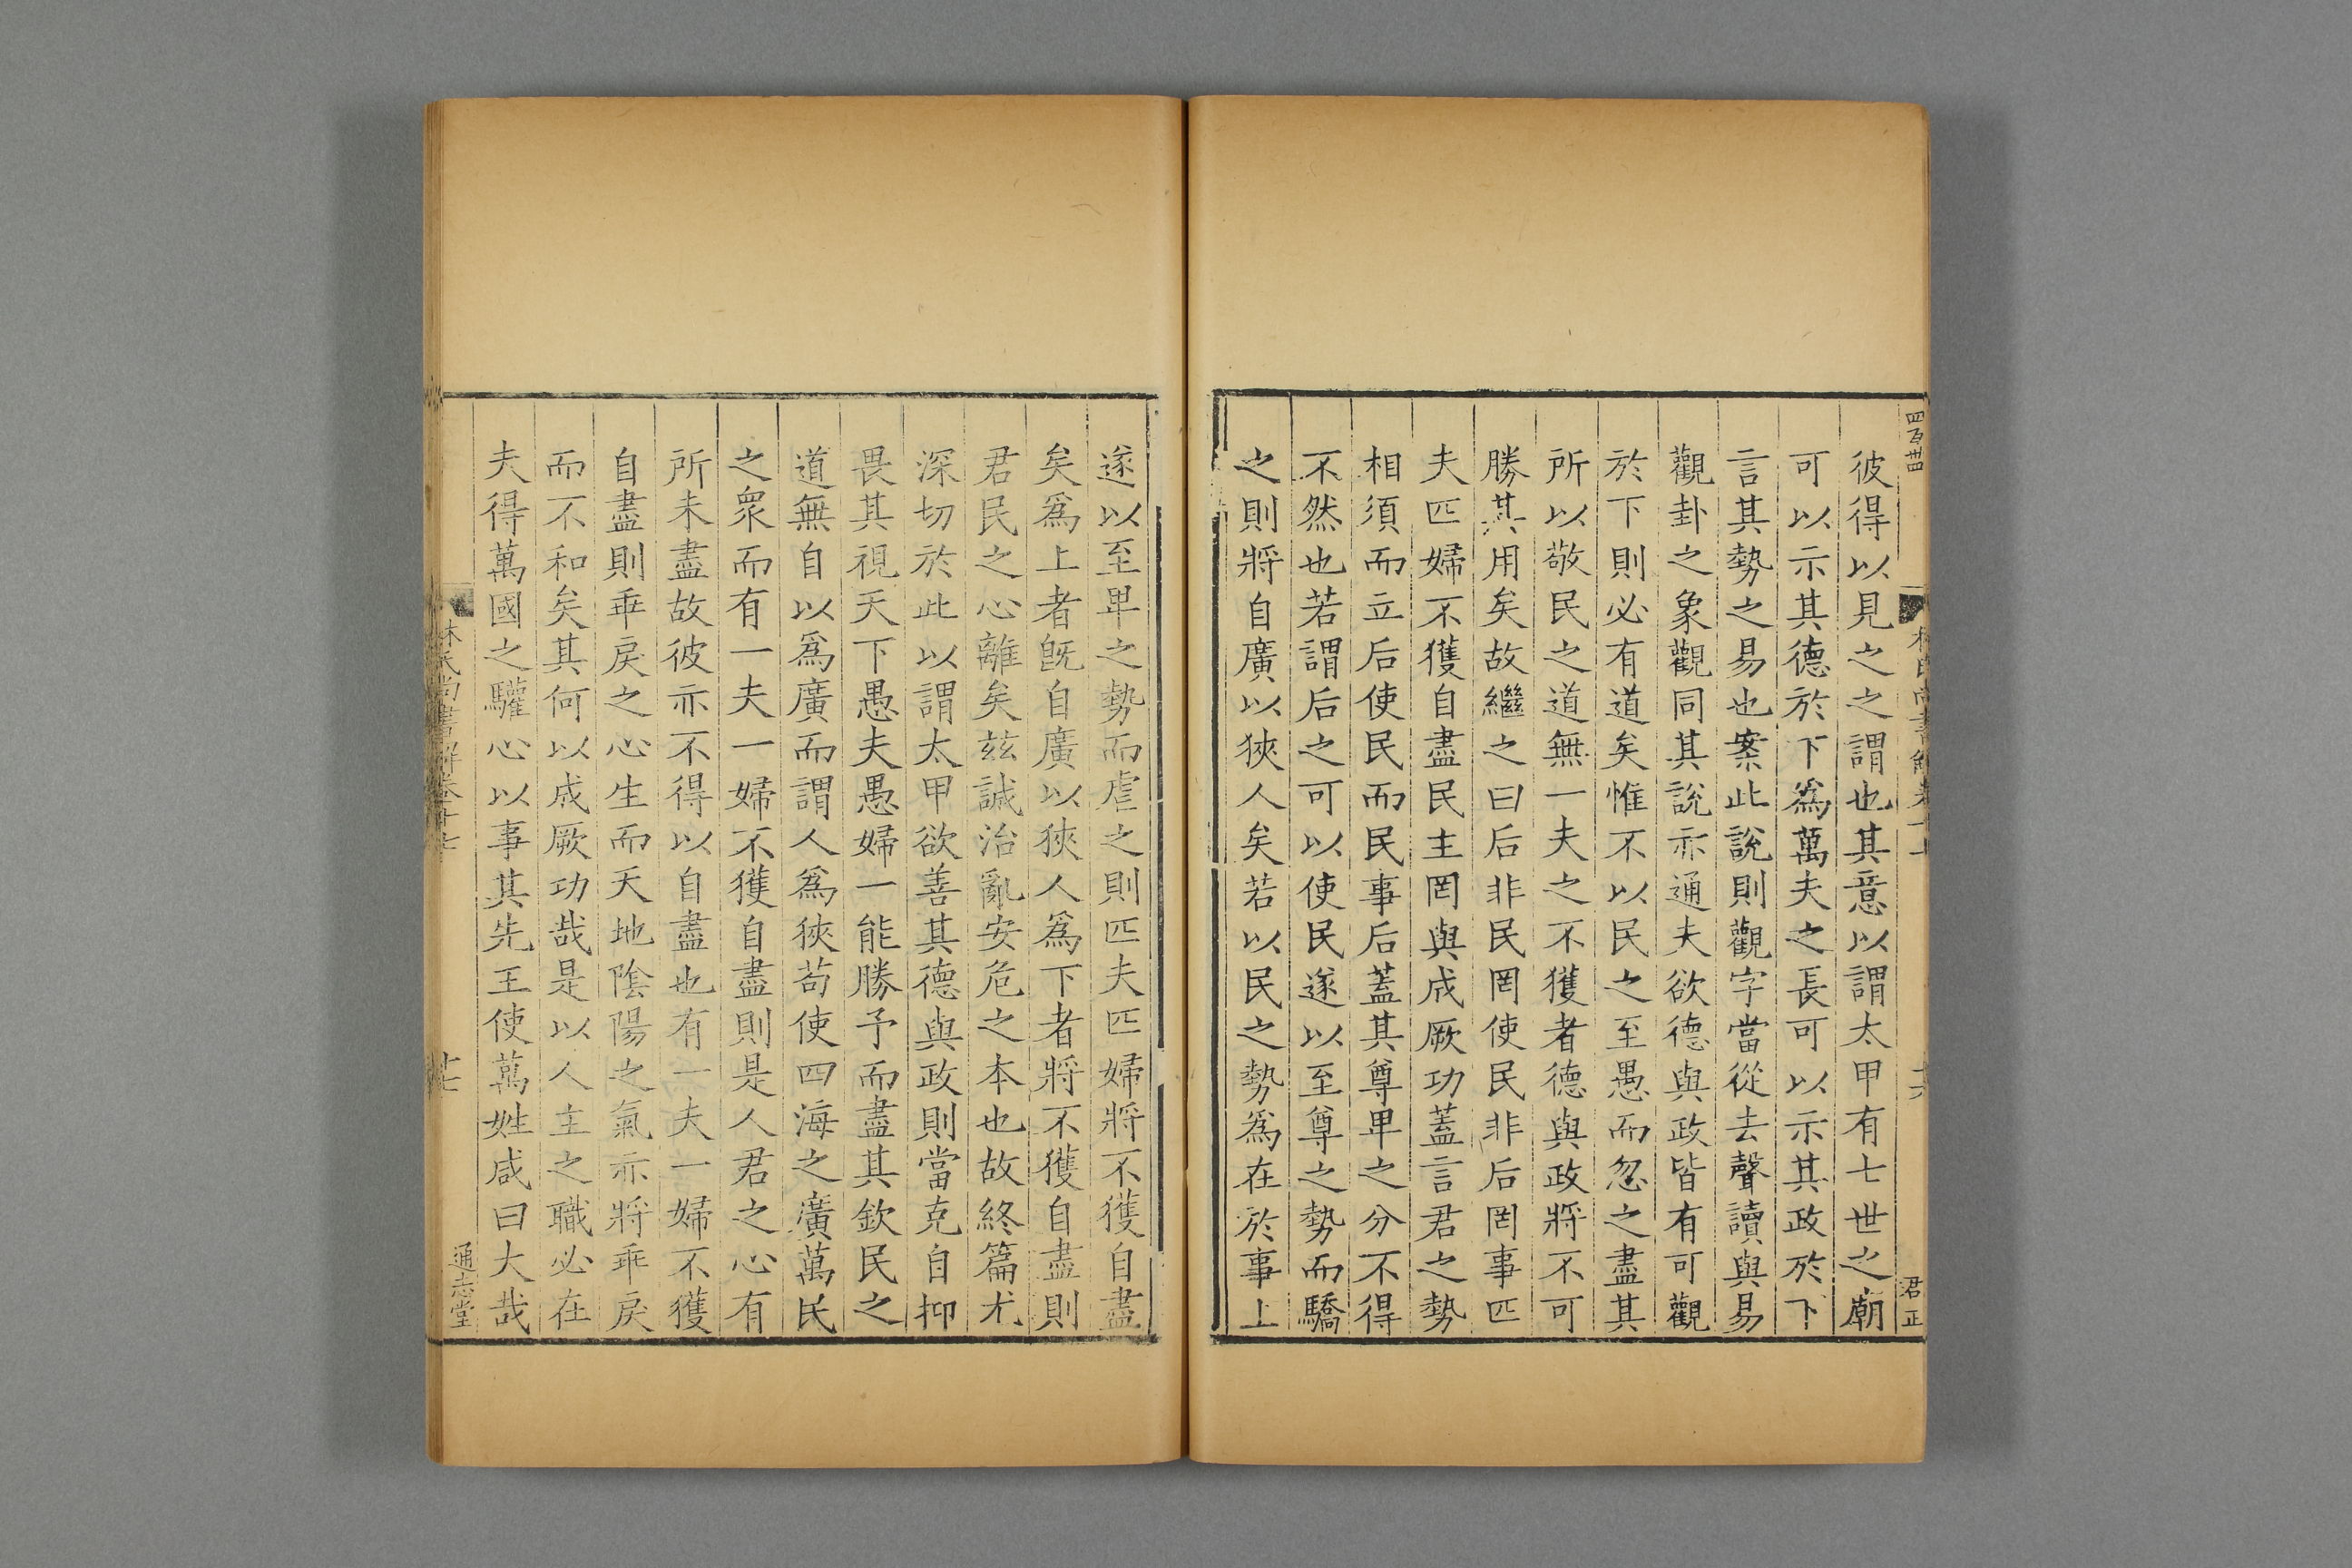 彼得以見之之謂也其意以謂太甲有七世之廟
可以示其德於下爲萬夫之長可以示其政於下
言其勢之易也案此說則觀字當從去聲讀與易
觀卦之象觀同其說亦通夫欲德與政皆有可觀
於下則必有道矣惟不以民之至愚而忽之盡其
所以敬民之道無一夫之不獲者德與政將不可
勝其用矣故繼之曰后非民罔使民非后罔事匹
夫匹婦不獲自盡民主罔與成厥功蓋言君之勢
相須而立后使民而民事后蓋其尊卑之分不得
不然也若謂后之可以使民遂以至尊之勢而驕
之則將自廣以狹人矣若以民之勢爲在於事上
君正
遂以至卑之勢而虐之則匹夫匹婦將不獲自盡
矣爲上者旣自廣以狹人爲下者將不獲自盡則
君民之心離矣兹誠治亂安危之本也故終篇尤
深切於此以謂太甲欲善其德與政則當克自抑
畏其視天下愚夫愚婦一能勝予而盡其欽民之
道無自以爲廣而謂人爲狹苟使四海之廣萬民
之衆而有一夫一婦不獲自盡則是人君之心有
所未盡故彼亦不得以自盡也有一夫一婦不獲
自盡則乖戾之心生而天地陰陽之氣亦將乖戾
而不和矣其何以成厥功哉是以人主之職必在
夫得萬國之驩心以事其先王使萬姓咸曰大哉
林氏尚書解卷十七
廿七
通志堂